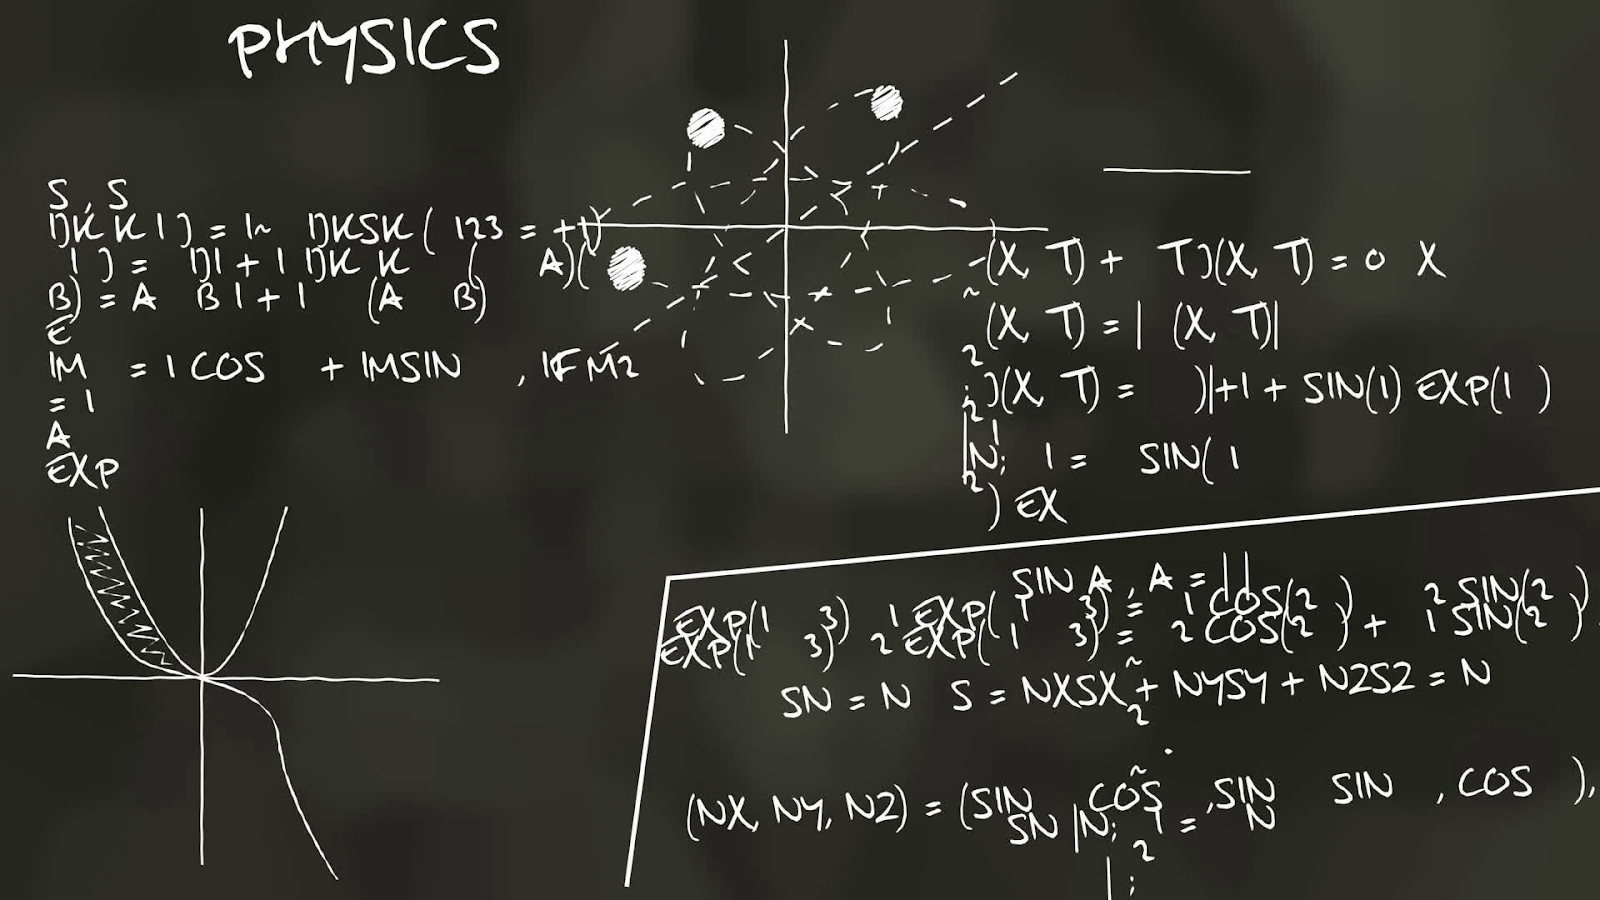 PHYSICS
S, S
K K 1 ) = 1~ KSK ( 123 = ++)
1 ) = 1 + 1 K K ( A)(
B) = A B 1 + 1 (A B)
E
1M = 1 COS + 1MSIN , IF M2
= 1
A
EXP
(X, T) + T (X, T) = 0 X
~
(X, T) = | (X, T)|
2
(X, T) = )|+1 + SIN(1) EXP(1 )
2
|N; 1 = SIN( 1
2
) EX
SIN A, A = ||
EXP(1 3) 1 EXP( 1 3) = 1 COS(2 ) + 2 SIN(2 )
EXP(1 3) 2 EXP( 1 3) = 2 COS(2 ) + 1 SIN(2 ).
SN = N S = NXSX + NYSY + NZSZ = N
~
2
(NX, NY, NZ) = (SIN COS , SIN SIN , COS ),
SN |N; 1 = N
2
| ;